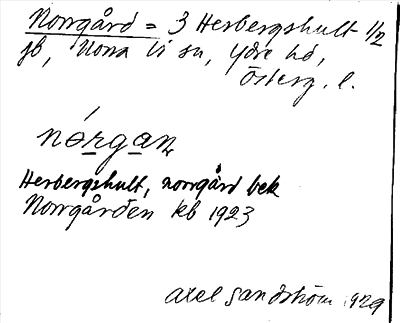 Norrgård = 3 Herbergshult 1/2
jb, Norra Vi sn, Ydre hd,
Österg. l.
nórgan
Herbergshult, norrgård bek
Norrgården kb 1923
Axel Sandström 1929